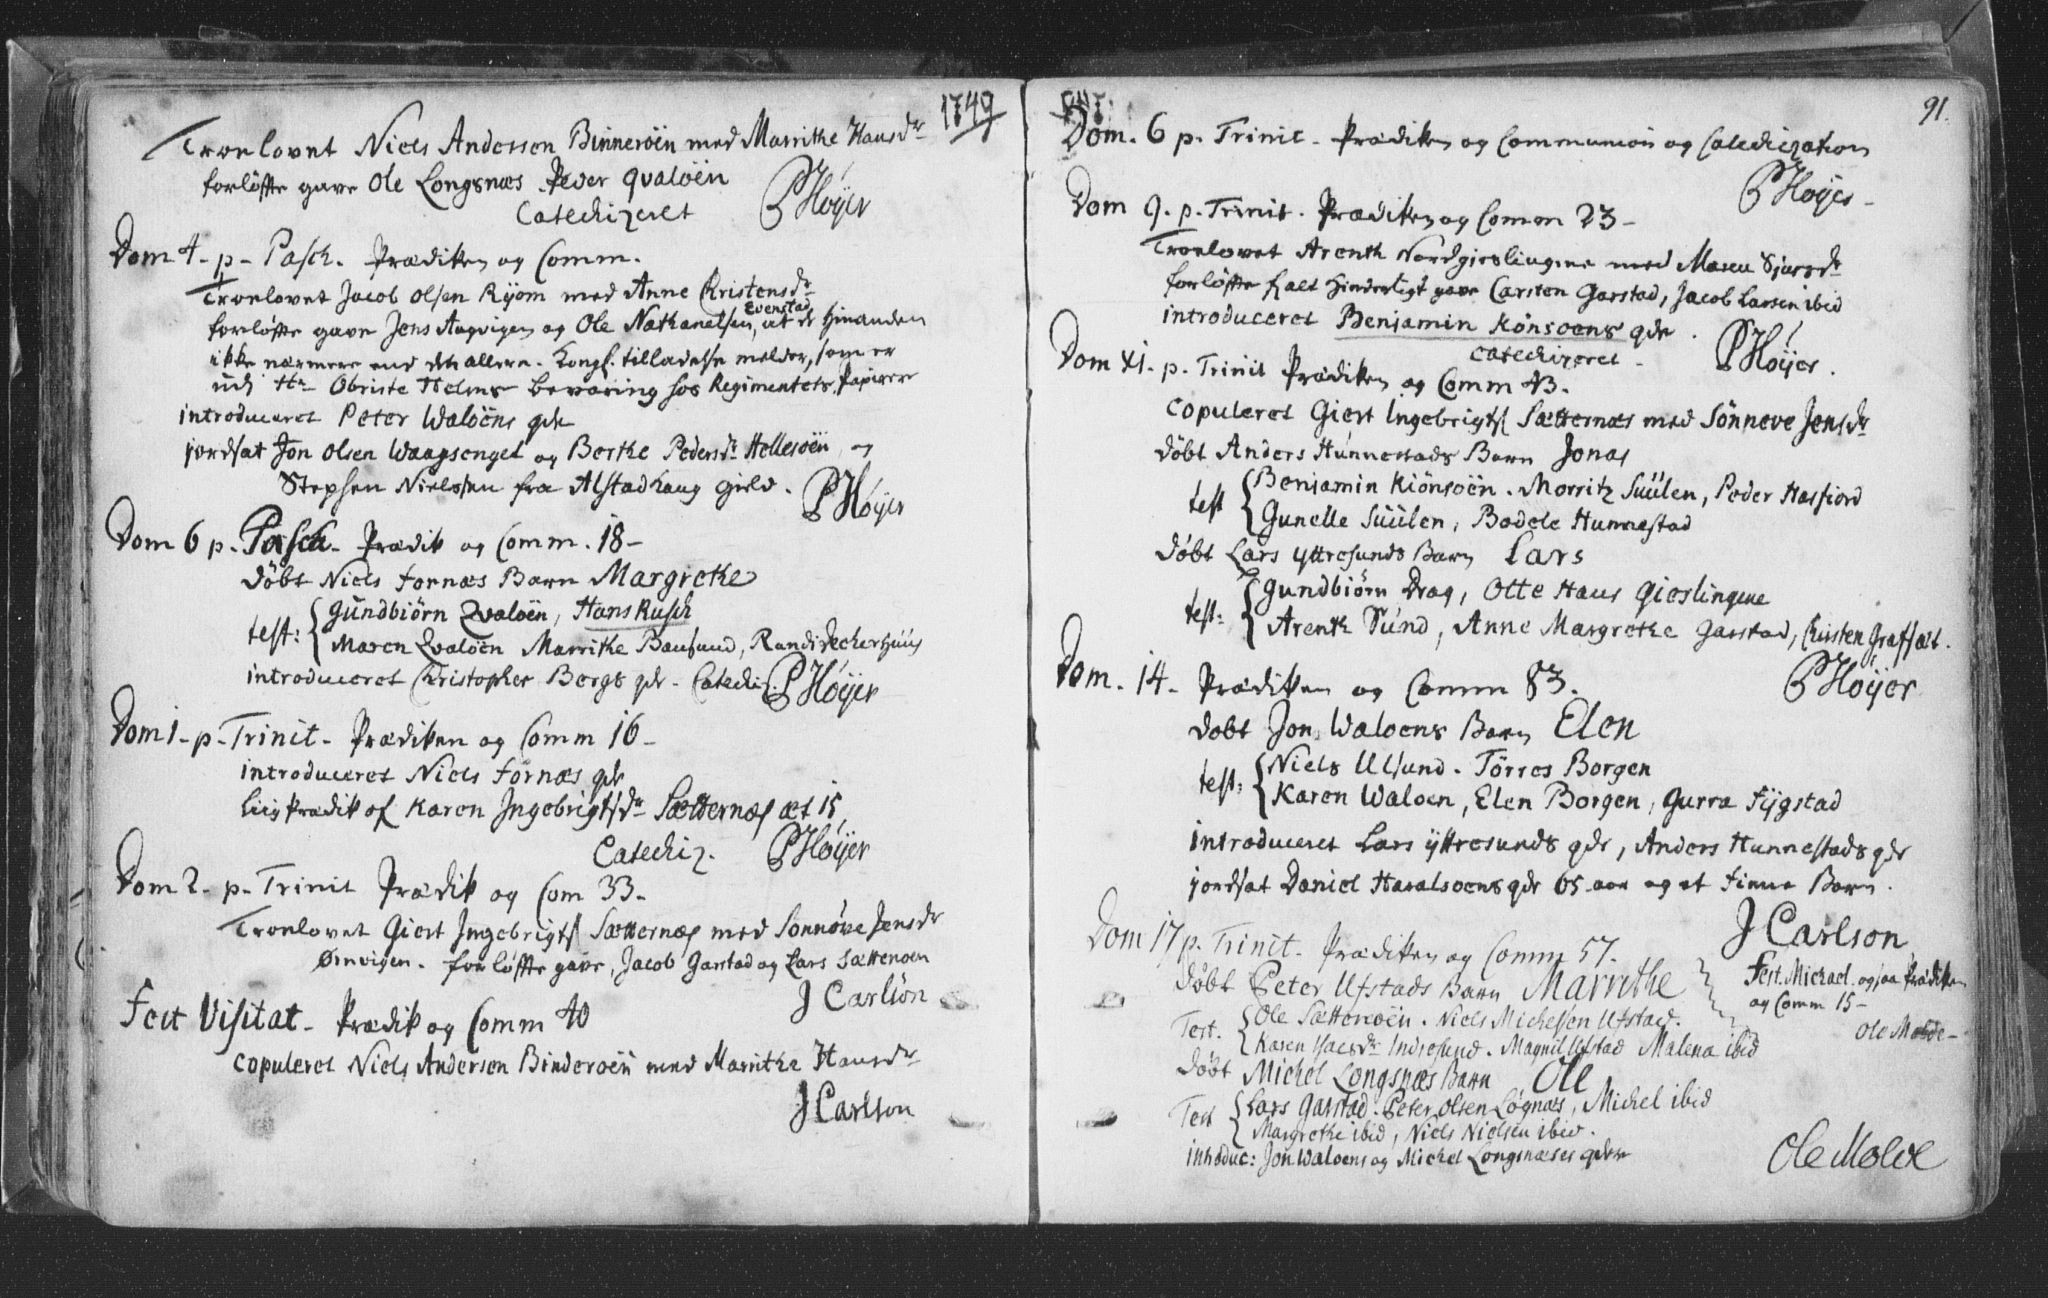 1749
Troelovet Niels Andersen Binnerøen med Marrithe Hansdr
forløffte gave Ole Longsnæs Peder qvaløen
Catechizeret PHøyer
Dom 4 - p - Pasch. Prædiken og Comm.
Troelovet Jacob Olsen Ryom med Anne Christensdr
Evenstad
forløffte gave Jens Aagvigen og Ole Nathanelsen, at de hinanden
ikke nærmere end den allern. Kongl. tilladelse melder, som er
udj Hr Obriste Helms bevaring hos Regimentets Papirer
introduceret Peter Waløens qde
jordsat Jon Olsen Waagsenget og Berthe Pedersdr Hellesøen og
Stephen Nielssen fra Alstadhaug gield. PHøyer
Dom 6 p. Pasch - Prædik og Comm. 18 -
døbt Niels Fornæs Barn Margrethe
test: { Gundbiörn Qvaløen, Hans Rusch
Maren Qvaløen Marrithe Bausund, Randi Deckerhuus
introduceret Christopher Bergs qde - Catechiz PHøyer
Dom 1 - p - Trinit - Prædiken og Comm 16 -
introduceret Niels Fornæs qde
liigprædik of Karen Ingebrigtsdr Sætternæs æt 15
Catechiz. PHøyer
Dom 2 - p - Trinit Prædik og Com 33 -
Troelovet Giert Ingebrigts Sætternæs med Sonnøve Jensdr
Ørnvigen. forløffte gave, Jacob Garstad og Lars Sætterøen
J Carlson
Fest Visitat - Prædik og Comm 40
copuleret Niels Andersen Binderøen med Marrithe Hansdr
J Carlson
91.
Dom. 6 p. Trinit - Prædiken og Communion og Catechization
PHøyer -
Dom 9. p. Trinit. Prædiken og Comm 23 -
Troelovet Arenth Nordgieslingene med Maren Sjursdr
forløffte f alt hinderligt gave Carsten Garstad, Jacob Larsen ibid
introduceret Benjamin Kønsøens qde.
Catechizeret - PHøyer.
Dom XI. p. Trinit Prædiken og Comm 43.
copuleret Giert Ingebrigts Sætternæs med Sönneve Jensdr
døbt Anders Hunnestads Barn Jonas
test { Benjamin Kiönsøen. Morritz Suulen, Peder Hasfiord
Gunelle Suulen, Bodele Hunnestad
døbt Lars Yttresunds Barn Lars
test: { Gundbiørn Drag, Otte Haus Gieslingene
Arenth Sund, Anne Margrethe Garstad, Kirsten Graffset.
Dom. 14 - Prædiken og Comm 83. PHøyer
døbt Jon Waløens Barn Elen
test: { Niels Ulsund. Törres Borgen
Karen Waløen, Elen Borgen, Gurra Fygstad
introduceret Lars Yttresunds qde, Anders Hunnestads qde
jordsat Daniel Haralsøens qde 65 aar og et Finne Barn.
J Carlson
Dom 17 p. Trinit - Prædiken og Comm 57.
døbt Peter Ufstads Barn Marrithe
Fest. Michael. ogsaa Prædiken
og Comm 15 -
Ole Molde -
Test. { Ole Sætterøen. Niels Michelsen Ufstad.
Karen Hansdr Indresund. Magnil Ufstad Malena ibid
døbt Michel Longsnæs Barn Ole
Test { Lars Garstad. Peter Olsen Løgnæs, Michel ibid
Margrethe ibid, Niels Nielsen ibid.
introduc: Jon Waløens og Michel Longsnæses qder
Ole Molde